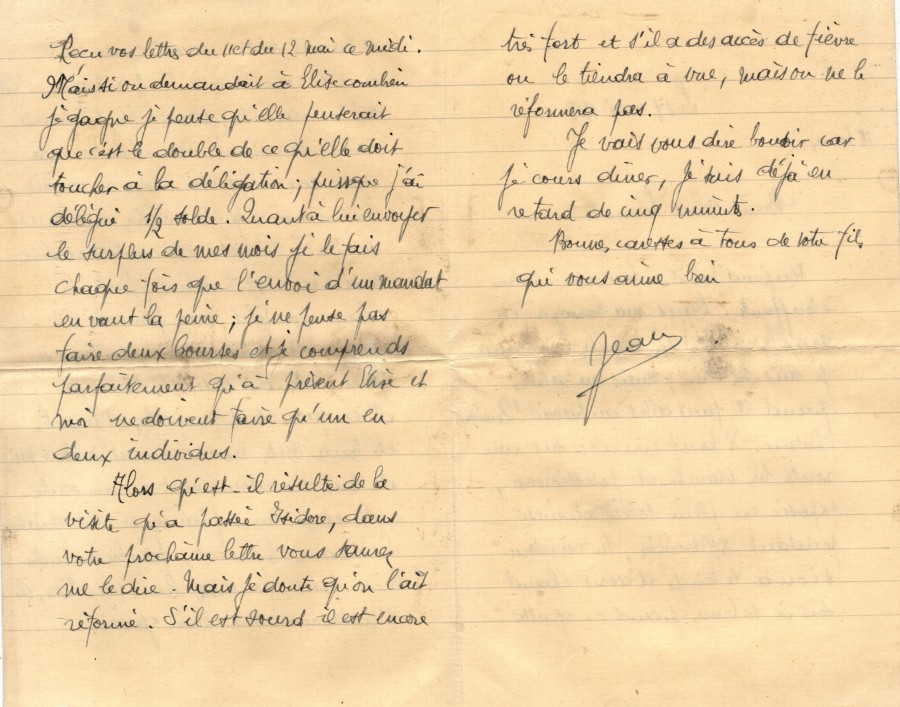 Reçu vos lettres du 11 et du 12 mai ce midi.
Mais si on demandait à Elise combien
je gagne je pense qu'elle penserait
que c'est le double de ce qu'elle doit
toucher à la délégation ; puisque j'ai
délégué 1/2 solde. Quant à lui envoyer
le surplus de mes mois je le fais
chaque fois que l'envoi d'un mandat
en vaut la peine ; je ne pense pas
faire deux bourses et je comprends
parfaitement qu'à présent Elise et
moi ne doivent faire qu'un en
deux individus.
Alors qu'est-il résulté de la
visite qu'a passée Isidore, dans
votre prochaine lettre vous saurez
me le dire. Mais je doute qu'on l'ait
réformé. S'il est sourd il est encore
très fort et s'il a des accès de fièvre
on le tiendra à vue, mais on ne le
réformera pas.
Je vais vous dire bonsoir car
je cours diner, je suis déjà en
retard de cinq minutes.
Bonnes caresses à tous de votre fils
qui vous aime bien
Jean